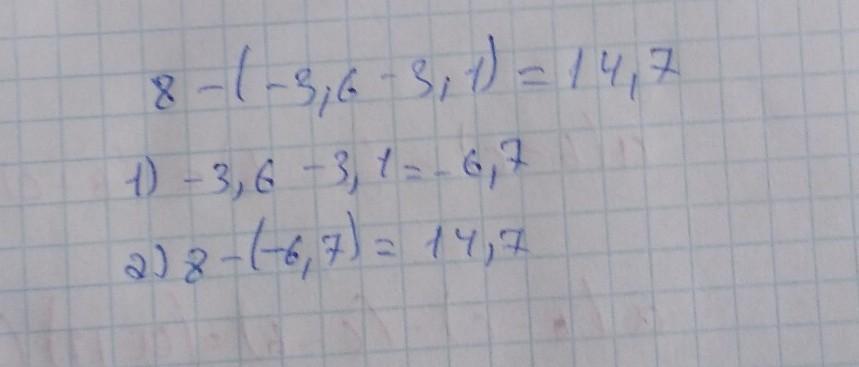 8 - (-3,6 - 3,1) = 14,7
1) -3,6 - 3,1 = -6,7
2) 8 - (-6,7) = 14,7